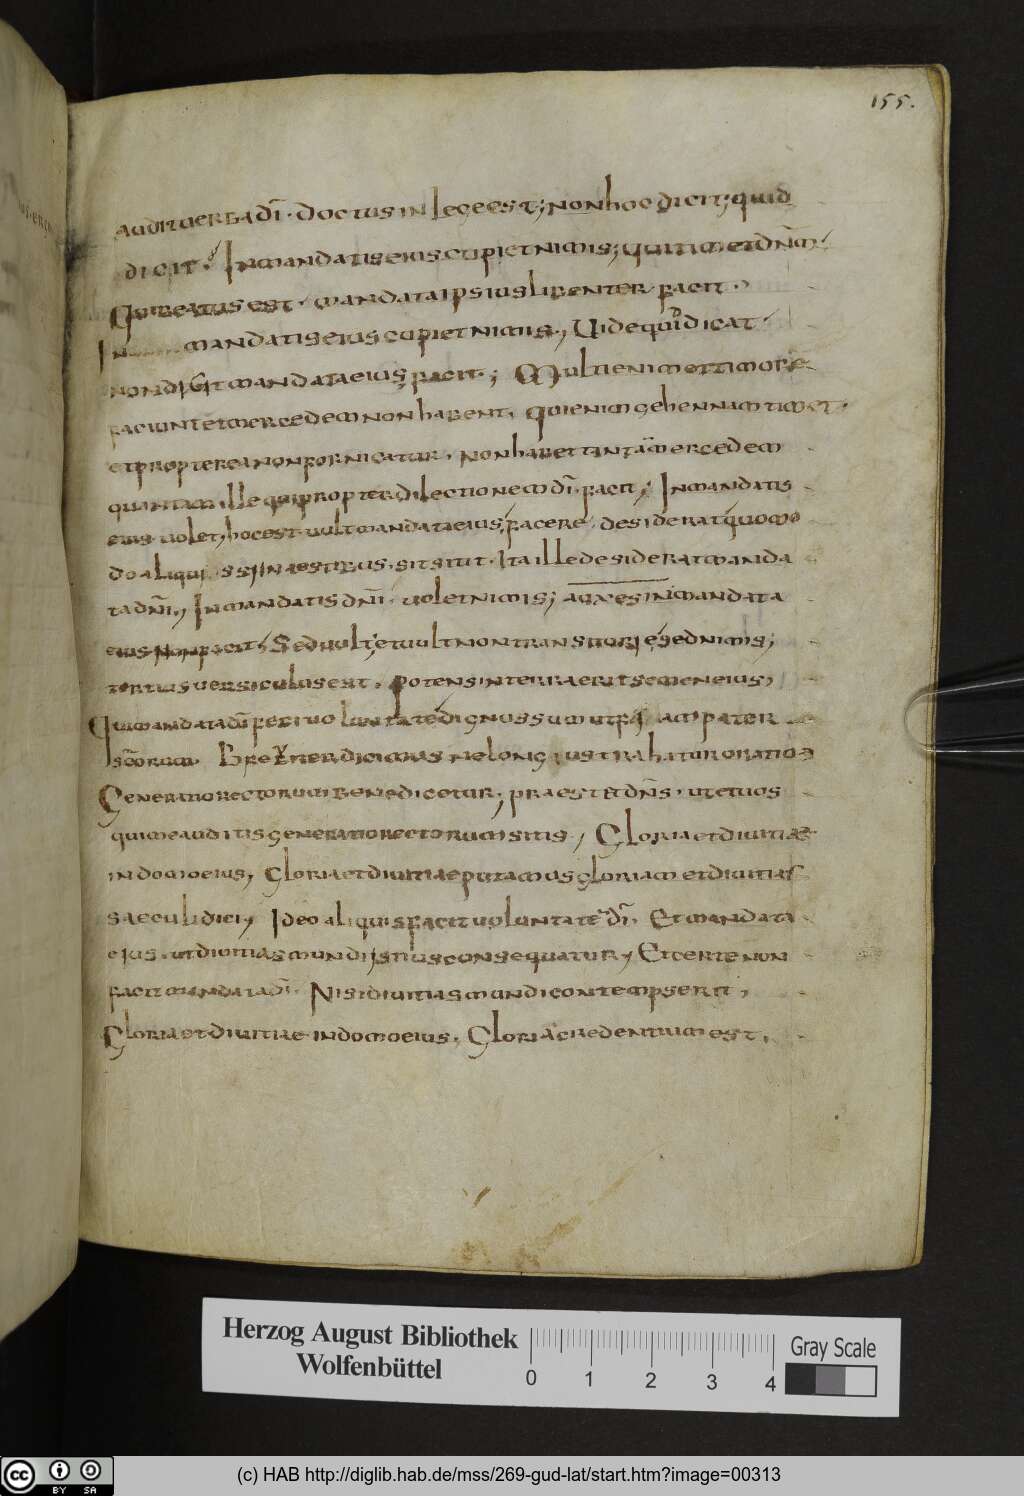 155.
audit verba dī. doctus in lege est; non hoc dicit; quid
dicit. In mandatis eius cupiet nimis; qui timet dn̄m
Qui beatus est. mandata ipsius libenter facit.
In mandatis eius cupiet nimis., Vide quid dicat
non dixit mandata eius facit.; Multi enim et timore
faciunt et mercedem non habent. Qui enim gehennam timet.
et propterea non fornicatur. non habet tantā mercedem
quantam ille qui propter dilectionem dī. facit; In mandatis
eius volet, hoc est vult mandata eius facere. desiderat quomo
do aliqui in aestibus. sitsitit. Ita ille desiderat manda
ta dn̄i., In mandatis dn̄i. volet nimis; in mandata
eius non facit, Sed vult, et vult non transitorię sed nimis;
tertius versiculus est. Potens in terra erit semen eius,
Qui mandata dī feci voluntate dignus sum ut pater
scōrum. Breviter dicimus ne longius trahatur oratio
Generatio rectorum benedicetur, praestet dn̄s. ut et vos
qui me auditis generatio rectorum sitis, Gloria et divitiae
in domo eius, Gloria et divitiae putamus gloriam et divitias
saeculi dici, Ideo aliquis facit voluntatē dī. Et mandata
eius. ut divitias mundi istius consequatur, Et certe non
facit mandata dī. Nisi divitias mundi contempserit,
Gloria et divitiae in domo eius, Gloria credentium est.
Herzog August Bibliothek
Wolfenbüttel
0 1 2 3 4
Gray Scale
cc BY SA
(c) HAB http://diglib.hab.de/mss/269-gud-lat/start.htm?image=00313